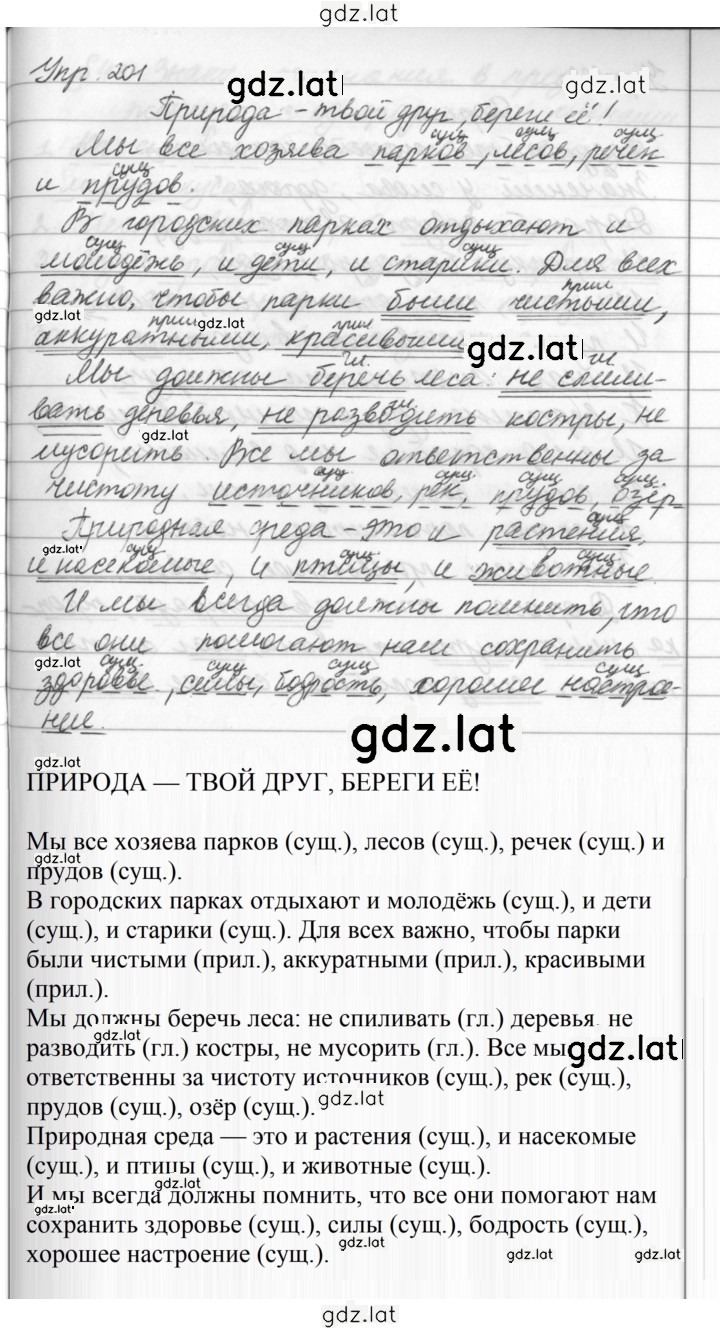 gdz.lat
Упр. 201
gdz.lat
Природа - твой друг, береги её!
сущ сущ сущ
Мы все хозяева парков, лесов, речек
сущ
и прудов.
В городских парках отдыхают и
сущ сущ сущ
молодёжь, и дети, и старики. Для всех
важно, чтобы парки были чистыми,
gdz.lat прил gdz.lat прил прил
аккуратными, красивыми
gdz.lat
гл. гл.
Мы должны беречь леса: не спили-
гл.
вать деревья, не разводить костры, не
gdz.lat
мусорить. Все мы ответственны за
сущ сущ сущ сущ.
чистоту источников, рек, прудов, озёр
Природная среда - это и растения,
gdz.lat сущ сущ сущ сущ
и насекомые, и птицы, и животные.
И мы всегда должны помнить, что
все они помогают нам сохранить
gdz.lat сущ. сущ сущ сущ
здоровье, силы, бодрость, хорошее настрое-
ние.
gdz.lat
gdz.lat
ПРИРОДА — ТВОЙ ДРУГ, БЕРЕГИ ЕЁ!
Мы все хозяева парков (сущ.), лесов (сущ.), речек (сущ.) и
gdz.lat
прудов (сущ.).
В городских парках отдыхают и молодёжь (сущ.), и дети
(сущ.), и старики (сущ.). Для всех важно, чтобы парки
были чистыми (прил.), аккуратными (прил.), красивыми
(прил.).
Мы должны беречь леса: не спиливать (гл.) деревья, не
gdz.lat
разводить (гл.) костры, не мусорить (гл.). Все мы
gdz.lat
ответственны за чистоту источников (сущ.), рек (сущ.),
прудов (сущ.), озёр (сущ.).
gdz.lat
Природная среда — это и растения (сущ.), и насекомые
(сущ.), и птицы (сущ.), и животные (сущ.).
gdz.lat
И мы всегда должны помнить, что все они помогают нам
gdz.lat
сохранить здоровье (сущ.), силы (сущ.), бодрость (сущ.),
хорошее настроение (сущ.).
gdz.lat gdz.lat gdz.lat
gdz.lat